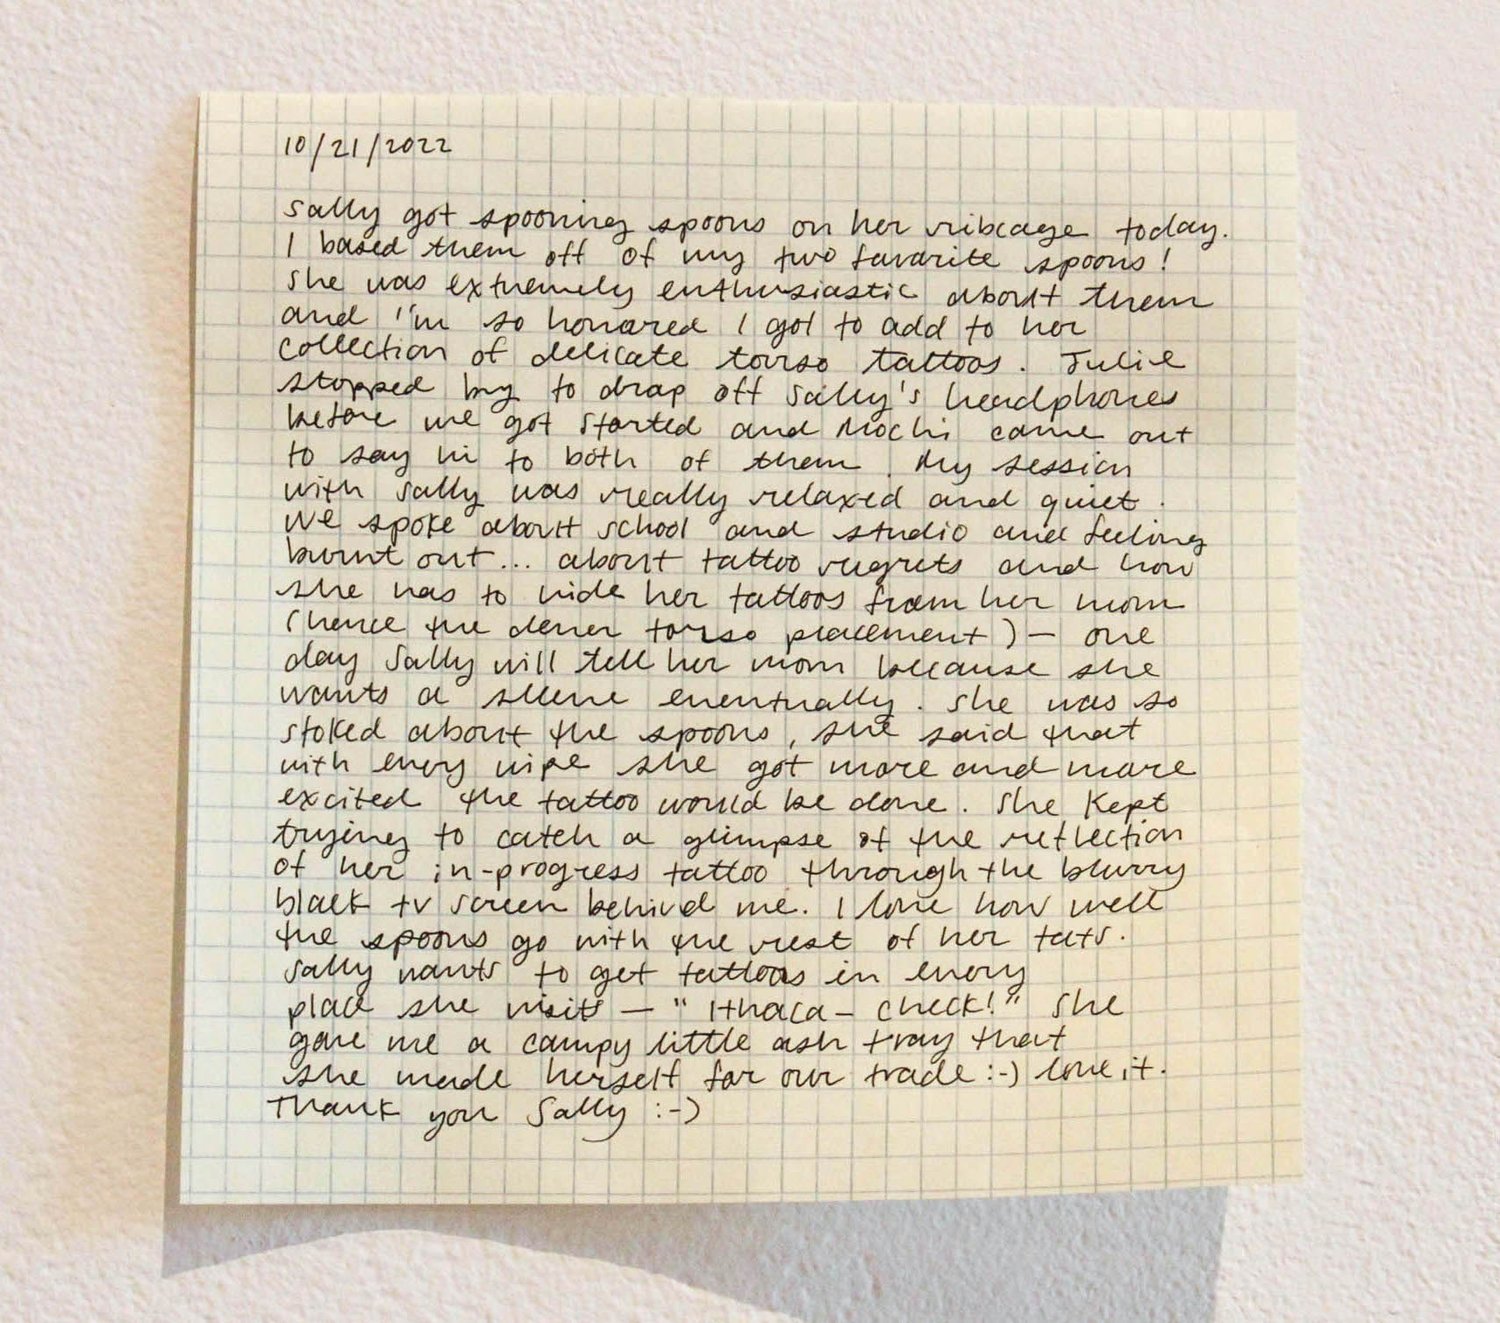 10/21/2022
Sally got spooning spoons on her ribcage today.
I based them off of my two favorite spoons!
She was extremely enthusiastic about them
and I'm so honored I got to add to her
collection of delicate torso tattoos. Julie
stopped by to drop off Sally's headphones
before we got started and Mochi came out
to say hi to both of them. My session
with Sally was really relaxed and quiet.
We spoke about school and studio and feeling
burnt out... about tattoo regrets and how
she has to hide her tattoos from her mom
(hence the clever torso placement) — one
day Sally will tell her mom because she
wants a sleeve eventually. She was so
stoked about the spoons, she said that
with every wipe she got more and more
excited the tattoo would be done. She kept
trying to catch a glimpse of the reflection
of her in-progress tattoo through the blurry
black tv screen behind me. I love how well
the spoons go with the rest of her tats.
Sally wants to get tattoos in every
place she visits — "Ithaca – check!" She
gave me a campy little ash tray that
she made herself for our trade :-) love it.
Thank you Sally :-)